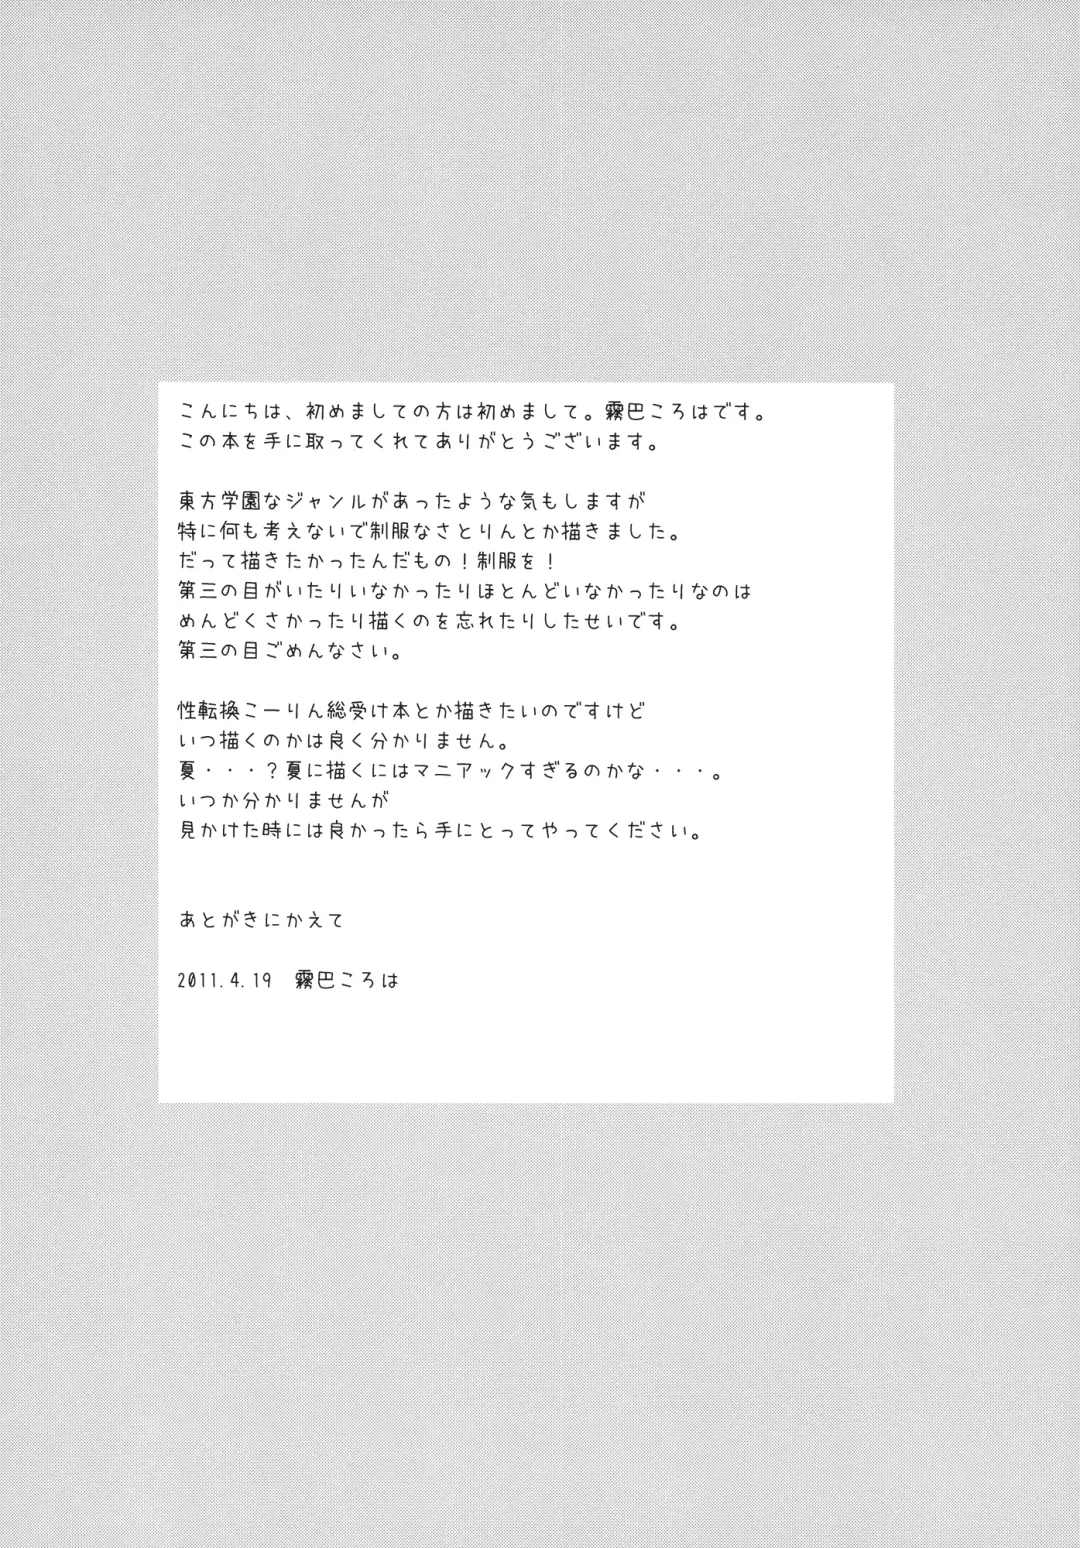 こんにちは、初めましての方は初めまして。霧巴ころはです。
この本を手に取ってくれてありがとうございます。
東方学園なジャンルがあったような気もしますが
特に何も考えないで制服なさとりんとか描きました。
だって描きたかったんだもの！制服を！
第三の目がいたりいなかったりほとんどいなかったりなのは
めんどくさかったり描くのを忘れたりしたせいです。
第三の目ごめんなさい。
性転換こーりん総受け本とか描きたいのですけど
いつ描くのかは良く分かりません。
夏・・・？夏に描くにはマニアックすぎるのかな・・・。
いつか分かりませんが
見かけた時には良かったら手にとってやってください。
あとがきにかえて
2011.4.19　霧巴ころは